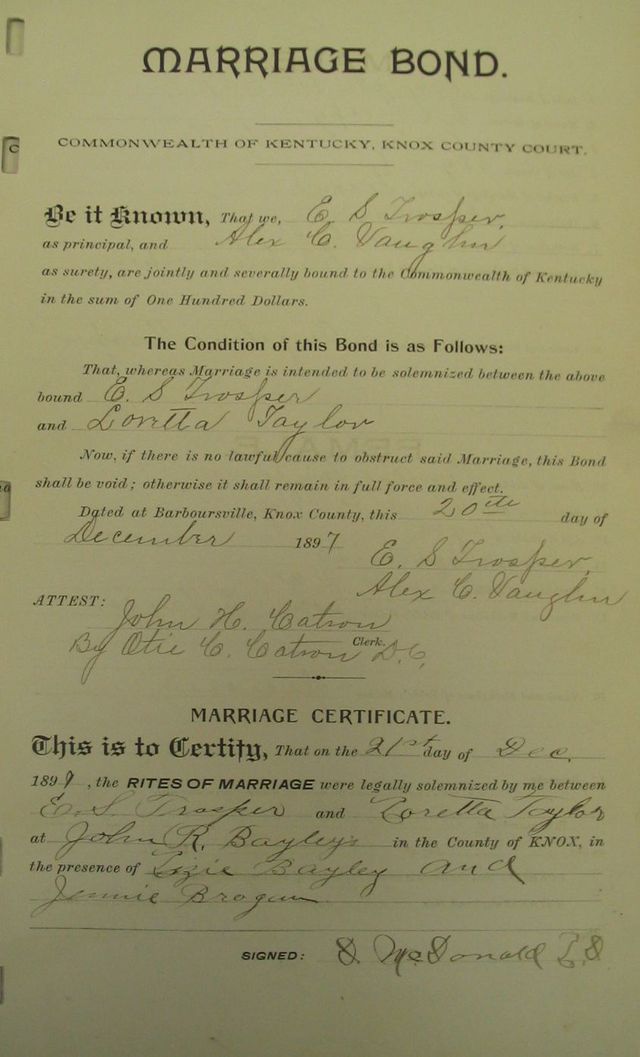 MARRIAGE BOND.
COMMONWEALTH OF KENTUCKY, KNOX COUNTY COURT.
Be it Known, That we, E. S Trosper,
as principal, and Alex C. Vaughn
as surety, are jointly and severally bound to the Commonwealth of Kentucky
in the sum of One Hundred Dollars.
The Condition of this Bond is as Follows:
That, whereas Marriage is intended to be solemnized between the above
bound E. S Trosper
and Loretta Taylor
Now, if there is no lawful cause to obstruct said Marriage, this Bond
shall be void; otherwise it shall remain in full force and effect.
Dated at Barboursville, Knox County, this 20th day of
December 1897
E. S Trosper,
Alex C. Vaughn
ATTEST:
John H. Catron
Clerk.
By Otie C. Catron D.C,
MARRIAGE CERTIFICATE.
This is to Certify, That on the 21st day of Dec.
1897, the RITES OF MARRIAGE were legally solemnized by me between
E. S. Trosper and Loretta Taylor
at John R. Bayley's in the County of KNOX, in
the presence of Lizie Bayley and
Jennie Brogan
SIGNED: McDonald